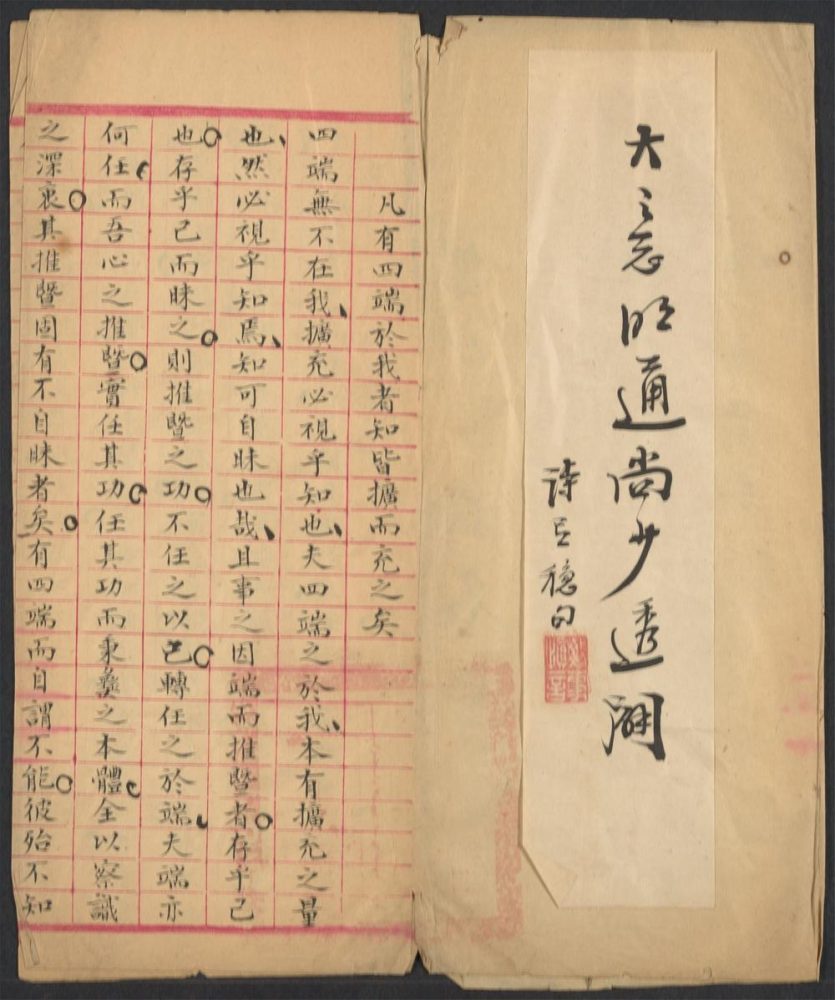 大意明通尚少透闢
詩亦穩日
凡有四端於我者知皆擴而充之矣
四端無不在我擴充必視乎知也夫四端之於我本有擴充之量
也然必視乎知焉知可自昧也哉且事之因端而推暨者存乎己
也存乎己而昧之則推暨之功不任之以己轉任之於端夫端亦
何任而吾心之推暨實任其功任其功而秉彝之本體全以察識
之深衷其推暨固有不自昧者矣有四端而自謂不能彼殆不知